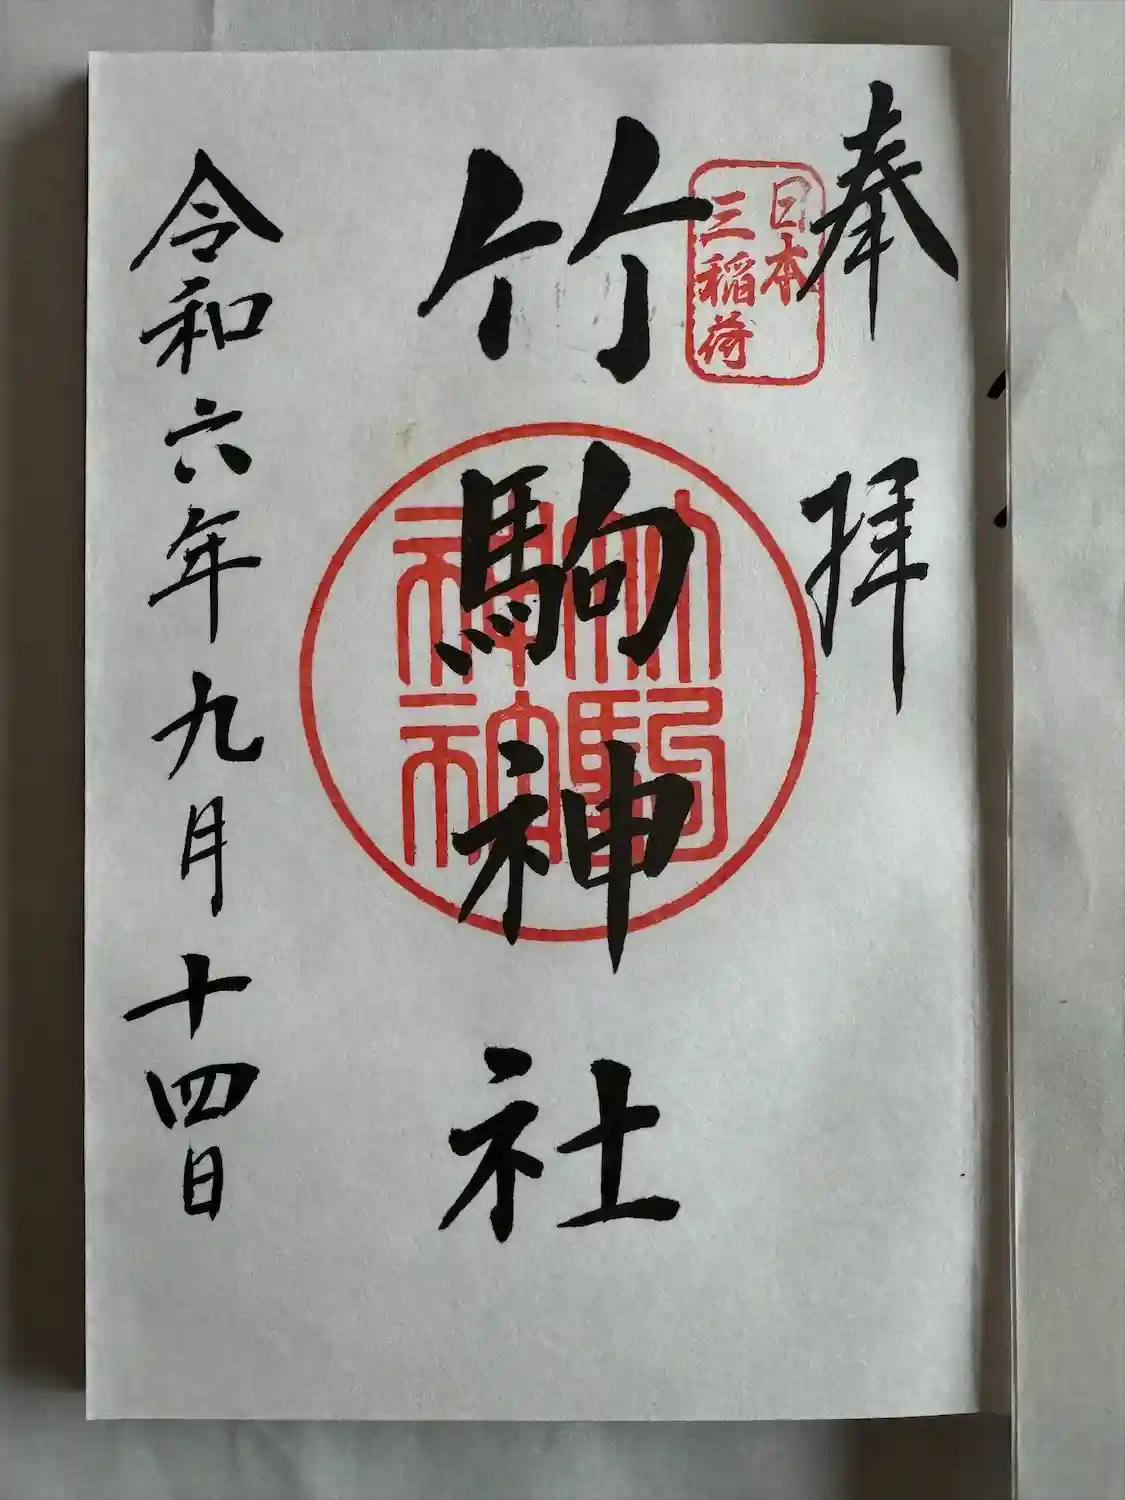 奉拝
日本
三稲荷
竹駒神社
竹駒
神社
令和六年九月十四日